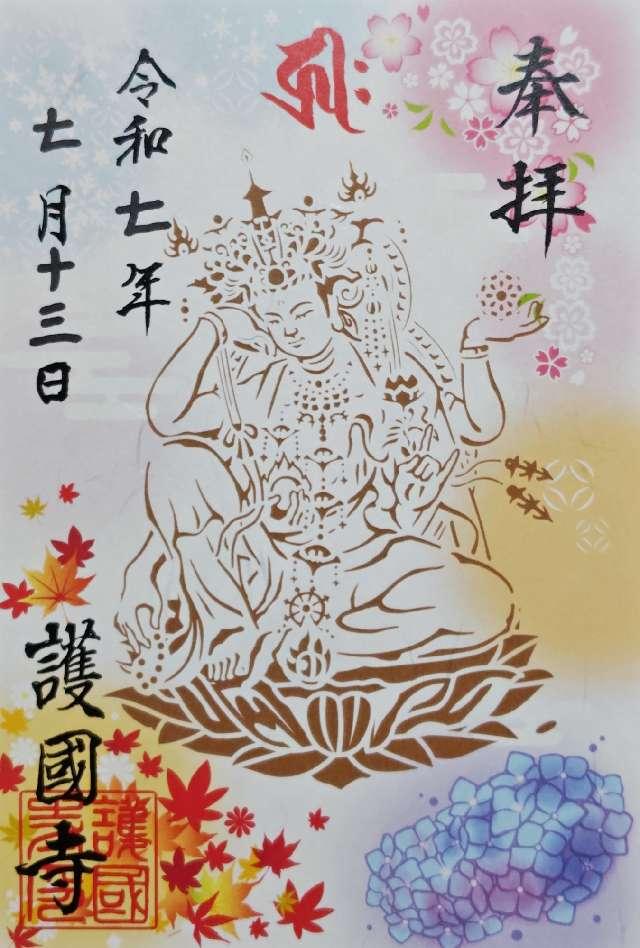 奉拝
令和七年
七月十三日
護國寺
護國